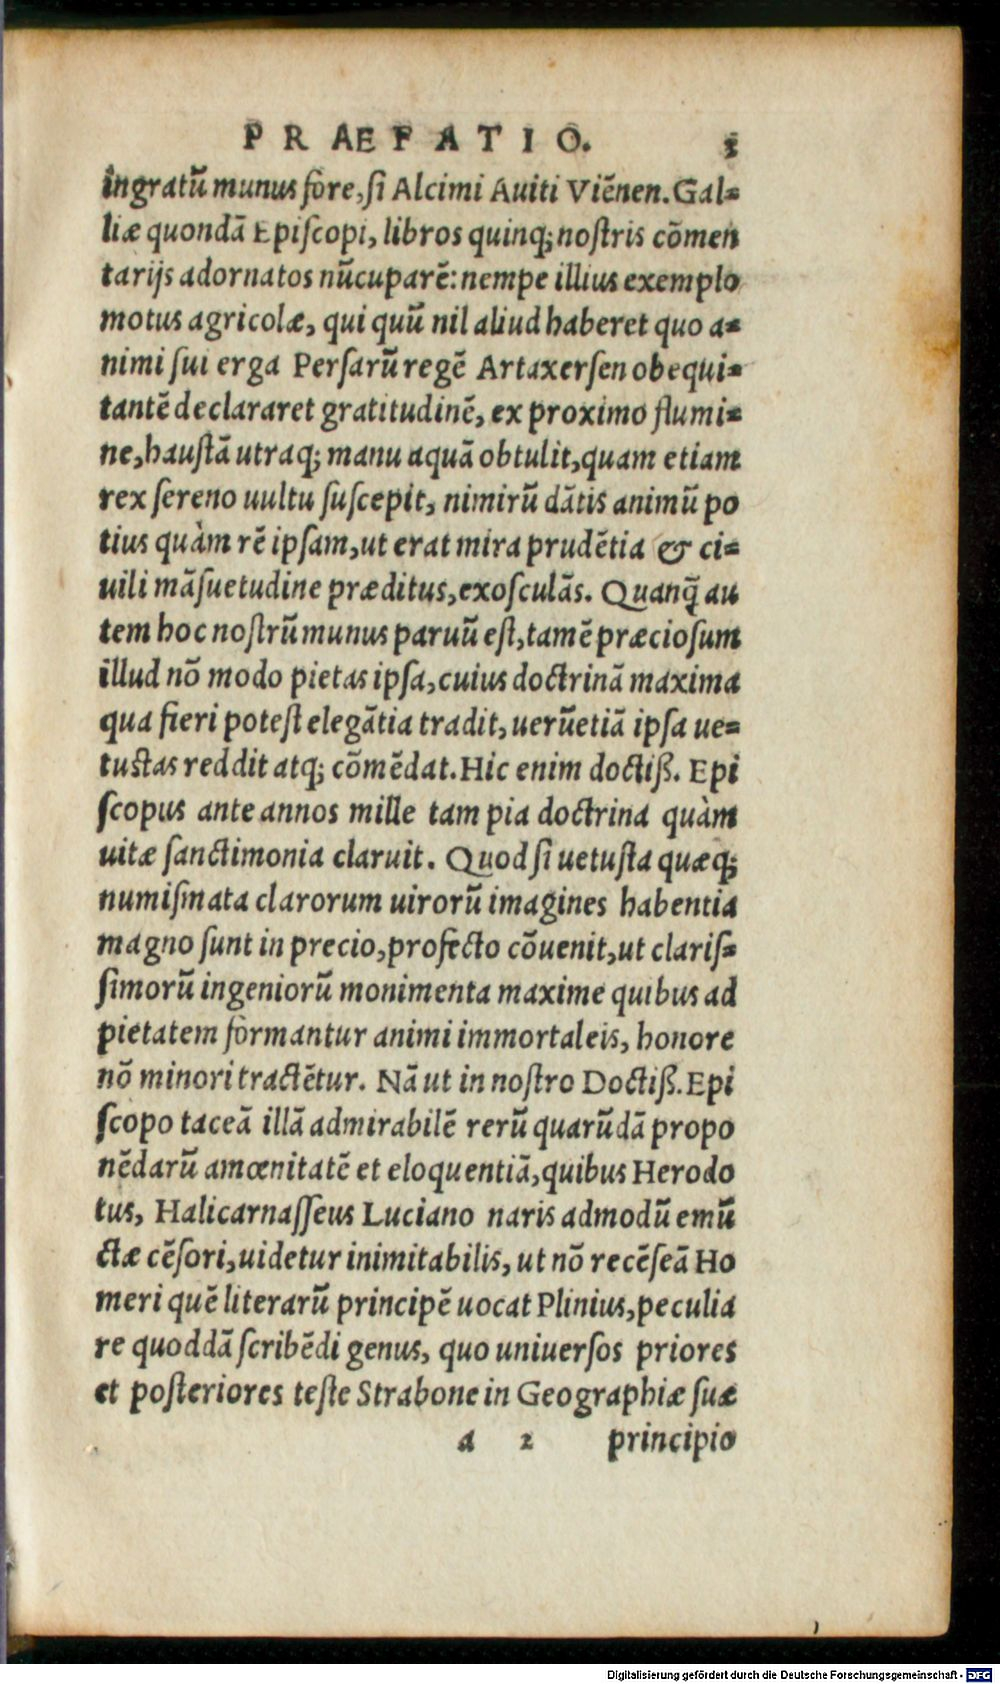 PRAEFATIO. 3
ingratū munus fore, ſi Alcimi Auiti Viēnen. Gal-
liæ quondā Epiſcopi, libros quinq; noſtris cōmen
tarijs adornatos nūcuparē: nempe illius exemplo
motus agricolæ, qui quū nil aliud haberet quo a-
nimi ſui erga Perſarū regē Artaxerſen obequi-
tantē declararet gratitudinē, ex proximo flumi-
ne, hauſtā utraq; manu aquā obtulit, quam etiam
rex ſereno uultu ſuſcepit, nimirū dātis animū po
tius quàm rē ipſam, ut erat mira prudētia & ci-
uili māſuetudine præditus, exoſculās. Quanq̄ au
tem hoc noſtrū munus paruū eſt, tamē præcioſum
illud nō modo pietas ipſa, cuius doctrinā maxima
qua fieri poteſt elegātia tradit, uerūetiā ipſa ue-
tuſtas reddit atq; cōmēdat. Hic enim doctiß. Epi
ſcopus ante annos mille tam pia doctrina quàm
uitæ ſanctimonia claruit. Quod ſi uetuſta quæq;
numiſmata clarorum uirorū imagines habentia
magno ſunt in precio, profecto cōuenit, ut clariſ-
ſimorū ingeniorū monimenta maxime quibus ad
pietatem formantur animi immortaleis, honore
nō minori tractētur. Nā ut in noſtro Doctiß. Epi
ſcopo taceā illā admirabilē rerū quarūdā propo
nēdarū amœnitatē et eloquentiā, quibus Herodo
tus, Halicarnaſſeus Luciano naris admodū emū
ctæ cēſori, uidetur inimitabilis, ut nō recēſeā Ho
meri quē literarū principē uocat Plinius, peculia
re quoddā ſcribēdi genus, quo uniuerſos priores
et poſteriores teſte Strabone in Geographiæ ſuæ
a 2 principio
Digitalisierung gefördert durch die Deutsche Forschungsgemeinschaft - DFG